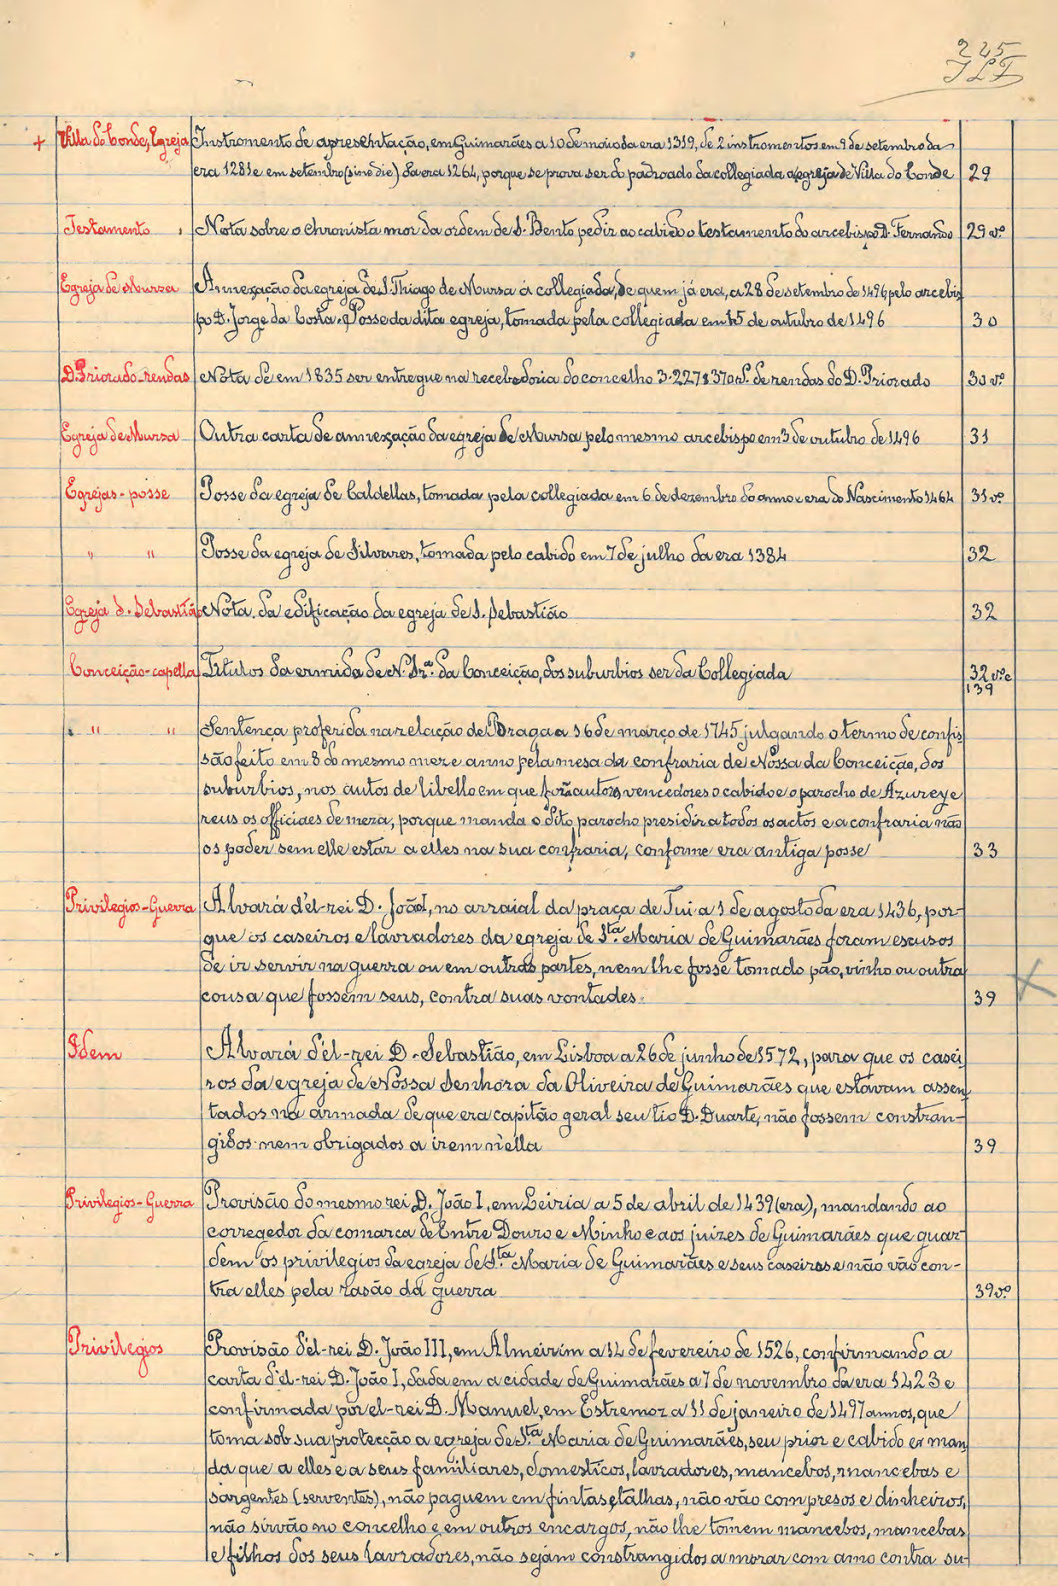 225
+ Villa do Conde, Egreja Instromento de apresentação, em Guimarães a 10 de maio da era 1319, de 2 instromentos em 9 de setembro da
era 1281 e em setembro (sine die) da era 1264, porque se prova ser do padroado da collegiada a egreja de Villa do Conde 29
Testamento Nota sobre o chronista mor da ordem de S. Bento pedir ao cabido o testamento do arcebispo D. Fernando 29 vº
Egreja de Mursa Annexação da egreja de S. Thiago de Mursa á collegiada, de quem já era, a 28 de setembro de 1496 pelo arcebis
po D. Jorge da Costa. Posse da dita egreja, tomada pela collegiada em 15 de outubro de 1496 30
D. Priorado-rendas Nota de em 1835 ser entregue na recebedoria do concelho 3.227$370 rs. de rendas do D. Priorado 30 vº
Egreja de Mursa Outra carta de annexação da egreja de Mursa pelo mesmo arcebispo em 3 de outubro de 1496 31
Egrejas-posse Posse da egreja de Caldellas, tomada pela collegiada em 6 de dezembro do anno e era do Nascimento 1464 31 vº
" " Posse da egreja de Silvares, tomada pelo cabido em 7 de julho da era 1384 32
Egreja S. Sebastião Nota da edificação da egreja de S. Sebastião 32
Conceição-capella Titulos da ermida de N. Srª. da Conceição, dos suburbios ser da Collegiada 32 vº e
139
" " Sentença proferida na relação de Braga a 16 de março de 1745 julgando o termo de confis
são feito em 8 do mesmo mez e anno pela mesa da confraria de Nossa da Conceição, dos
suburbios, nos autos de libello em que foram autores vencedores o cabido e o parocho de Azurey e
reus os officiaes de meza, porque manda o dito parocho presidir a todos os actos e a confraria não
os poder sem elle estar a elles na sua confraria, conforme era antiga posse 33
Privilegios-Guerra Alvará d'el-rei D. João I, no arraial da praça de Tui a 1 de agosto da era 1436, por-
que os caseiros e lavradores da egreja de Stª Maria de Guimarães foram escusos
de ir servir na guerra ou em outras partes, nem lhe fosse tomado pão, vinho ou outra
cousa que fossem seus, contra suas vontades. 39
Idem Alvará d'el-rei D. Sebastião, em Lisboa a 26 de junho de 1572, para que os casei
ros da egreja de Nossa Senhora da Oliveira de Guimarães que estavam assen
tados na armada de que era capitão geral seu tio D. Duarte, não fossem constran-
gidos nem obrigados a irem n'ella 39
Privilegios-Guerra Provisão do mesmo rei D. João I, em Leiria a 5 de abril de 1439 (era), mandando ao
corregedor da comarca d'Entre Douro e Minho e aos juizes de Guimarães que guar
dem os privilegios da egreja de Stª Maria de Guimarães e seus caseiros e não vão con-
tra elles pela rasão da guerra 39 vº
Privilegios Provisão d'el-rei D. João III, em Almeirim a 12 de fevereiro de 1526, confirmando a
carta d'el-rei D. João I, dada em a cidade de Guimarães a 7 de novembro da era 1423 e
confirmada por el-rei D. Manuel, em Estremoz a 11 de janeiro de 1497 annos, que
toma sob sua protecção a egreja de Stª Maria de Guimarães, seu prior e cabido e man
da que a elles e a seus familiares, domesticos, lavradores, mancebos, mancebas e
sargentes (serventes), não paguem em fintas e talhas, não vão com presos e dinheiros,
não sirvão no concelho e em outros encargos, não lhe tomem mancebos, mancebas
e filhos dos seus lavradores, não sejam constrangidos a morar com amo contra su-